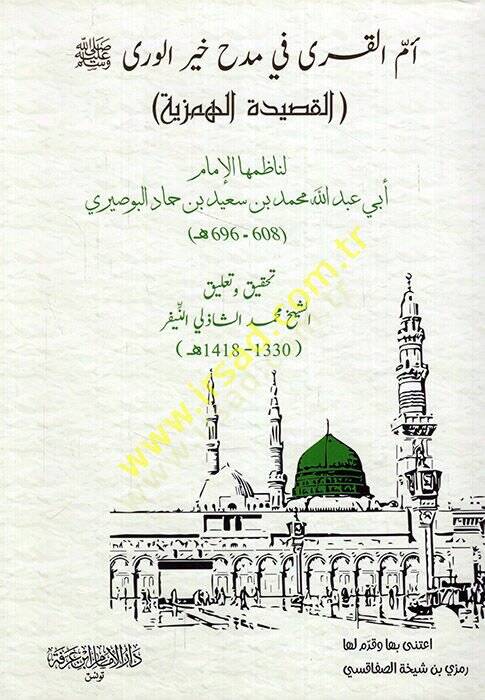 أمّ القرى في مدح خير الورى ﷺ
(القصيدة الهمزية)
لناظمها الإمام
أبي عبد الله محمد بن سعيد بن حماد البوصيري
(608 - 696هـ)
تحقيق وتعليق
الشيخ محمد الشاذلي النّيفر
(1330 - 1418هـ)
www.irsad.com.tr
اعتنى بها وقدّم لها
رمزي بن شيخة الصفاقسي
دار الإمام ابن عرفة
تونس